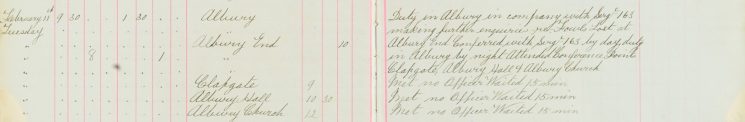 February 11st 9 30 . . 1 30 . . Albury Duty in Albury in company with Sergt 163
Tuesday making further enquiries re Fowls Lost at
" Albury End 10 Albury End Conferred with Sergt 163 by day, duty
" . . 8 . . 1 " in Albury by night Attended Conference Point
" Clapgate, Albury Hall & Albury Church
" Clapgate 9 Met no Officer Waited 15 min
" Albury Hall 10 30 Met no Officer Waited 15 min
" Albury Church 12 Met no Officer Waited 15 min